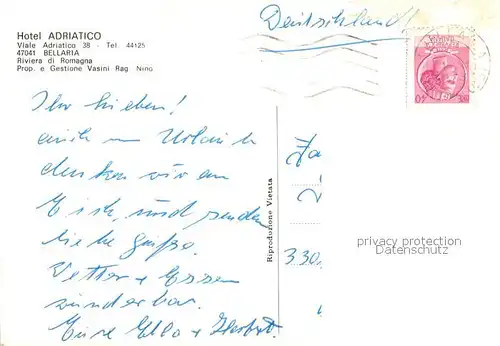 Hotel ADRIATICO
Viale Adriatico 38 - Tel 44125
47041 BELLARIA
Riviera di Romagna
Prop. e Gestione Vasini Rag Nino
Deutschland!
Ihr Lieben!
auch im Urlaub
denken wir an
Euch, und senden
liebe Grüße.
Wetter + Essen
wunderbar.
Eure Ella + Herbert.
Riproduzione Vietata
330
privacy protection
Datenschutz